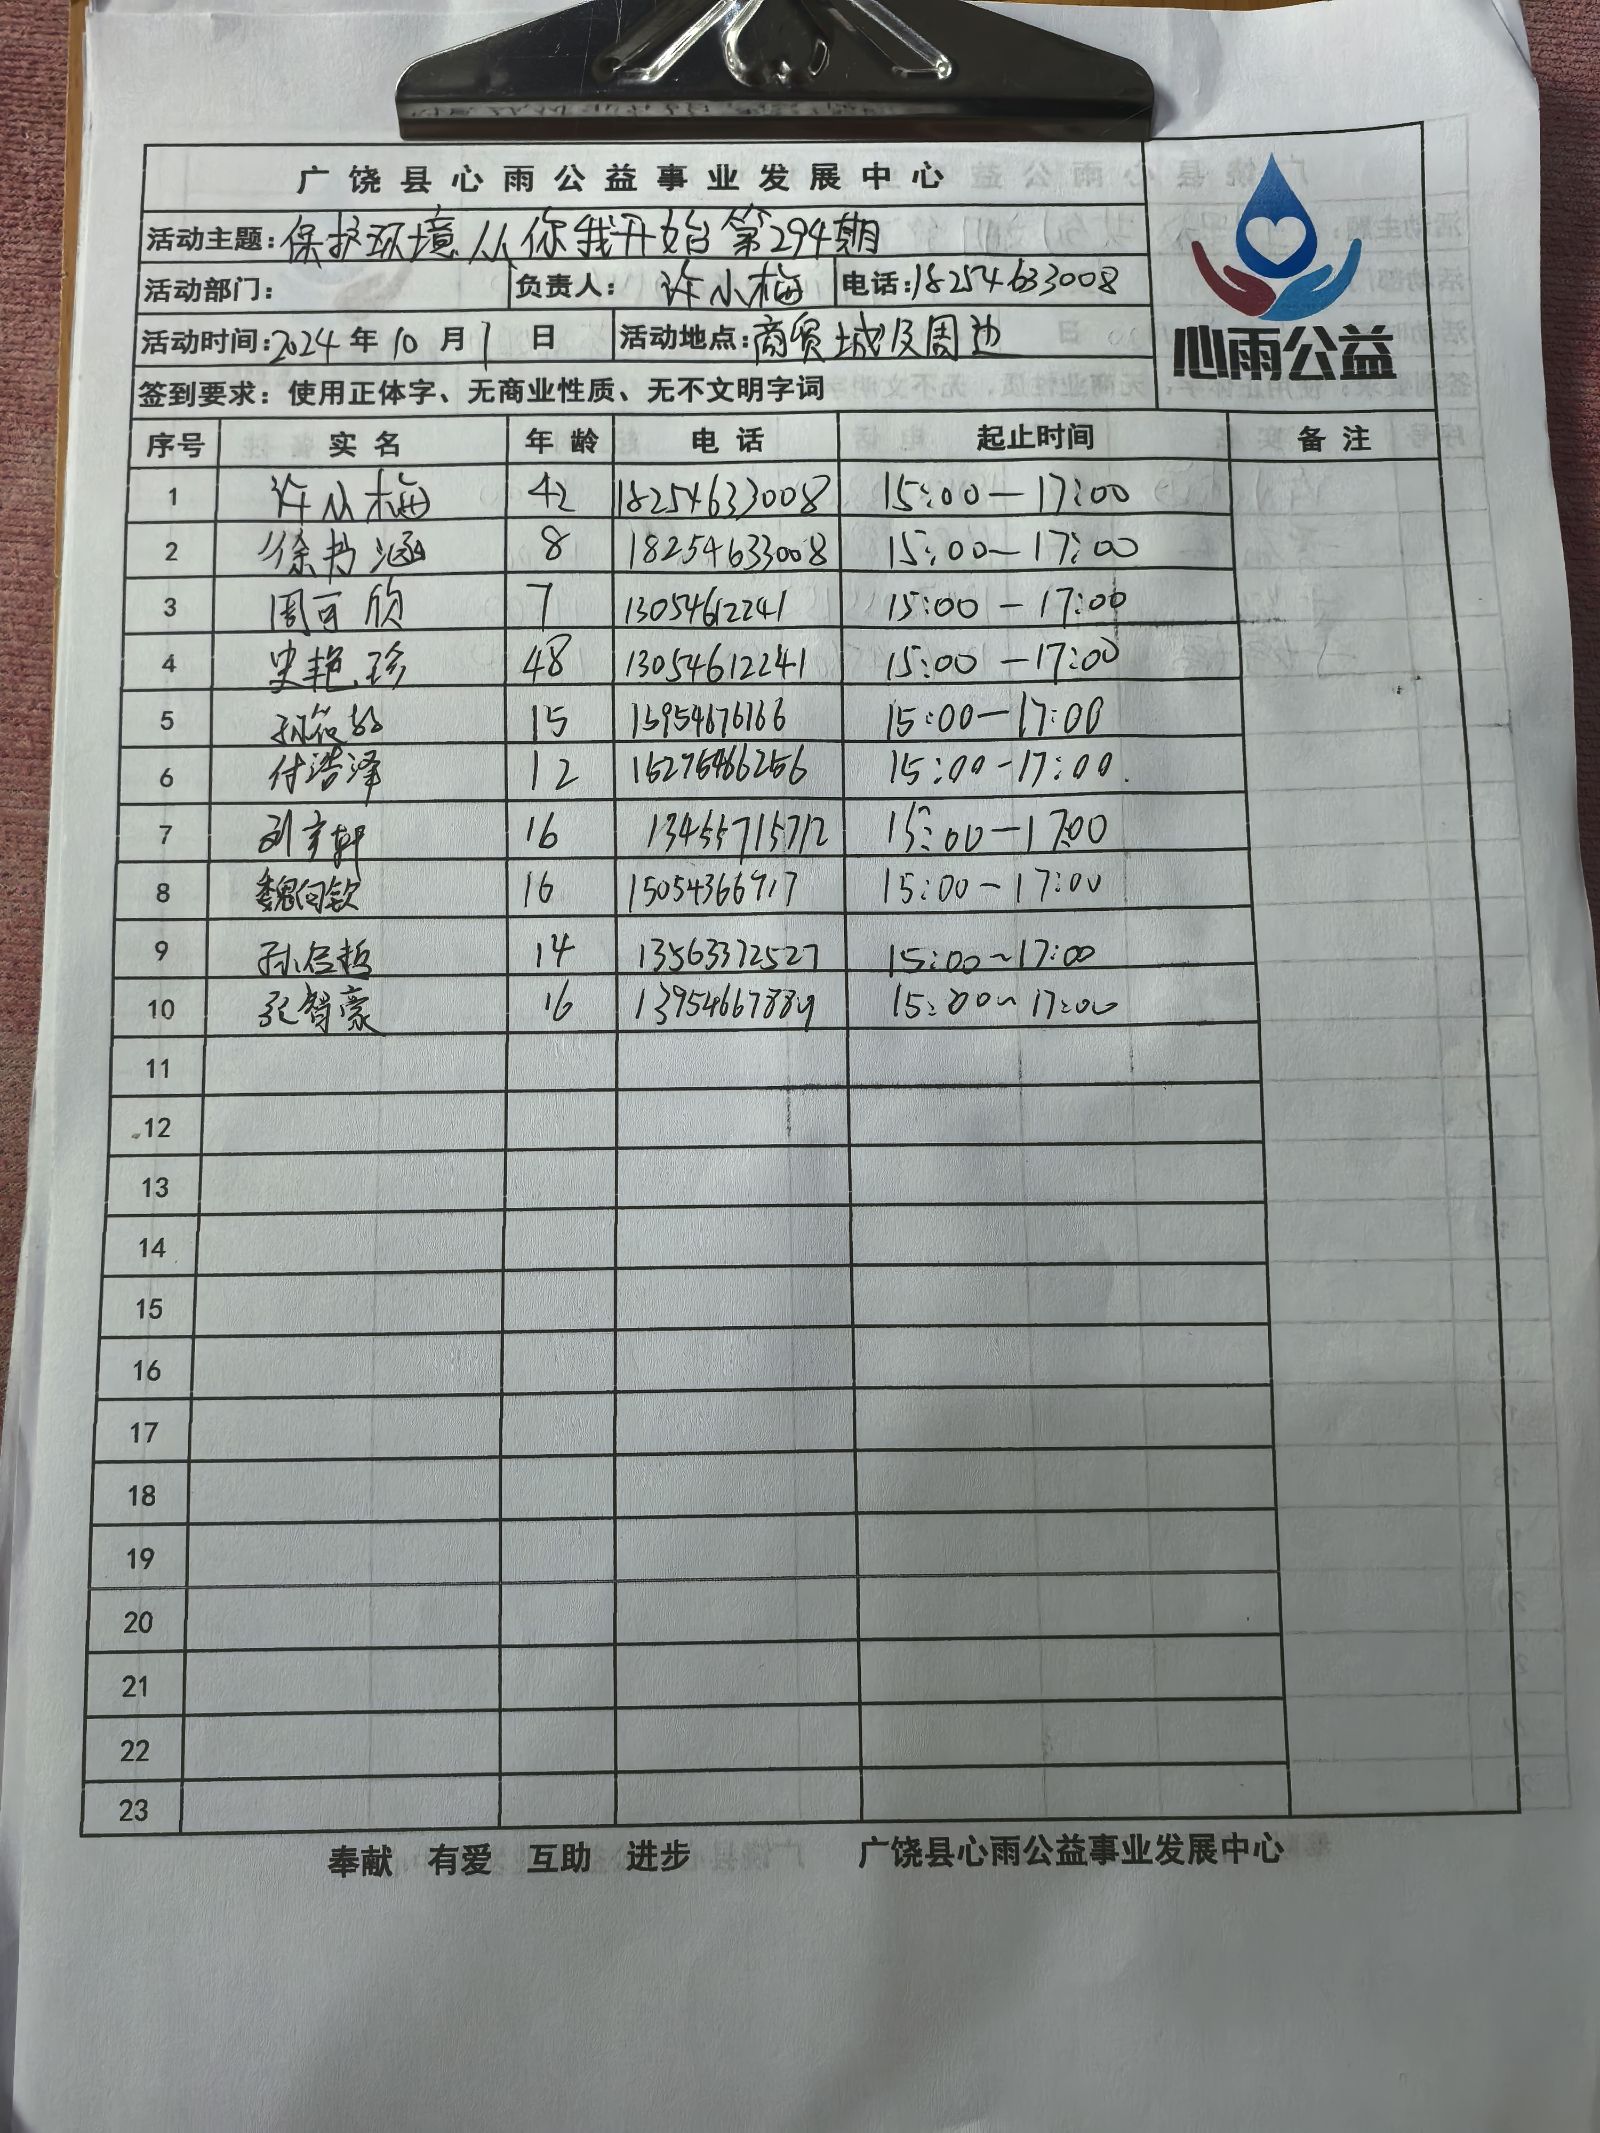 广饶县心雨公益事业发展中心
活动主题:保护环境从你我开始第294期
活动部门: 负责人: 许小梅 电话:18254633008
活动时间:2024年10月1日 活动地点:商贸城及周边
心雨公益
签到要求:使用正体字、无商业性质、无不文明字词
序号 实名 年龄 电话 起止时间 备注
1 许小梅 42 18254633008 15:00—17:00
2 徐书涵 8 18254633008 15:00—17:00
3 周可欣 7 13054612241 15:00—17:00
4 史艳珍 48 13054612241 15:00—17:00
5 15 15954676166 15:00—17:00
6 付浩泽 12 15275466256 15:00-17:00
7 刘宇轩 16 13455715712 15:00—17:00
8 魏向钦 16 15054366917 15:00-17:00
9 14 13563372527 15:00~17:00
10 张智豪 16 15:00~17:00
11
12
13
14
15
16
17
18
19
20
21
22
23
奉献 有爱 互助 进步 广饶县心雨公益事业发展中心